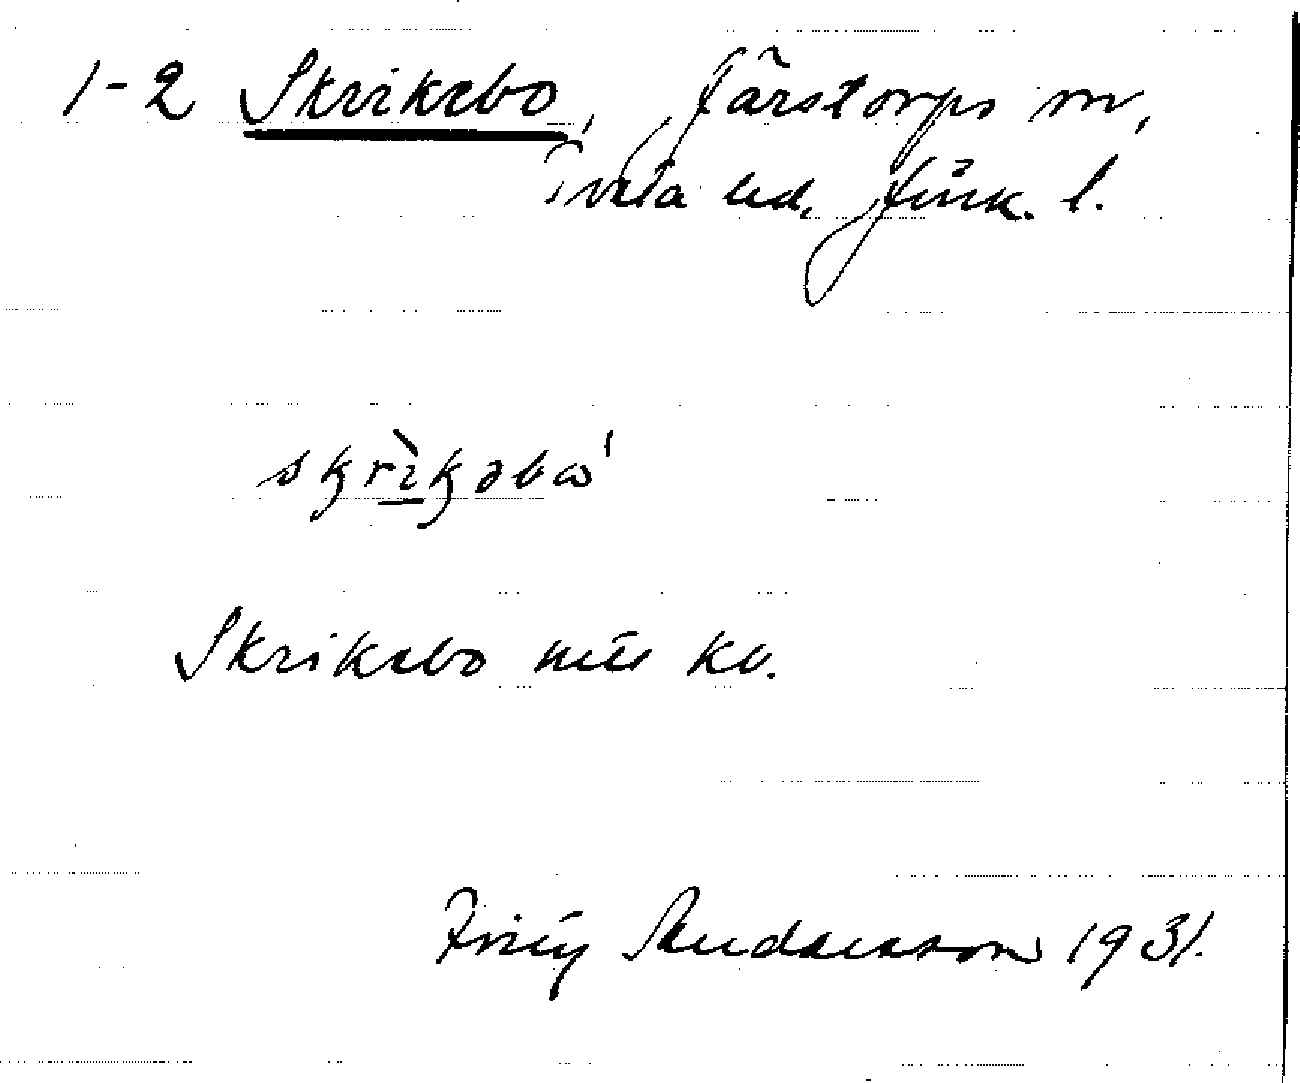 1-2 Skrikebo, Järstorps sn,
Tveta hd, Jönk. l.
skrìkəbω'
Skrikebo
Andersson 1931.